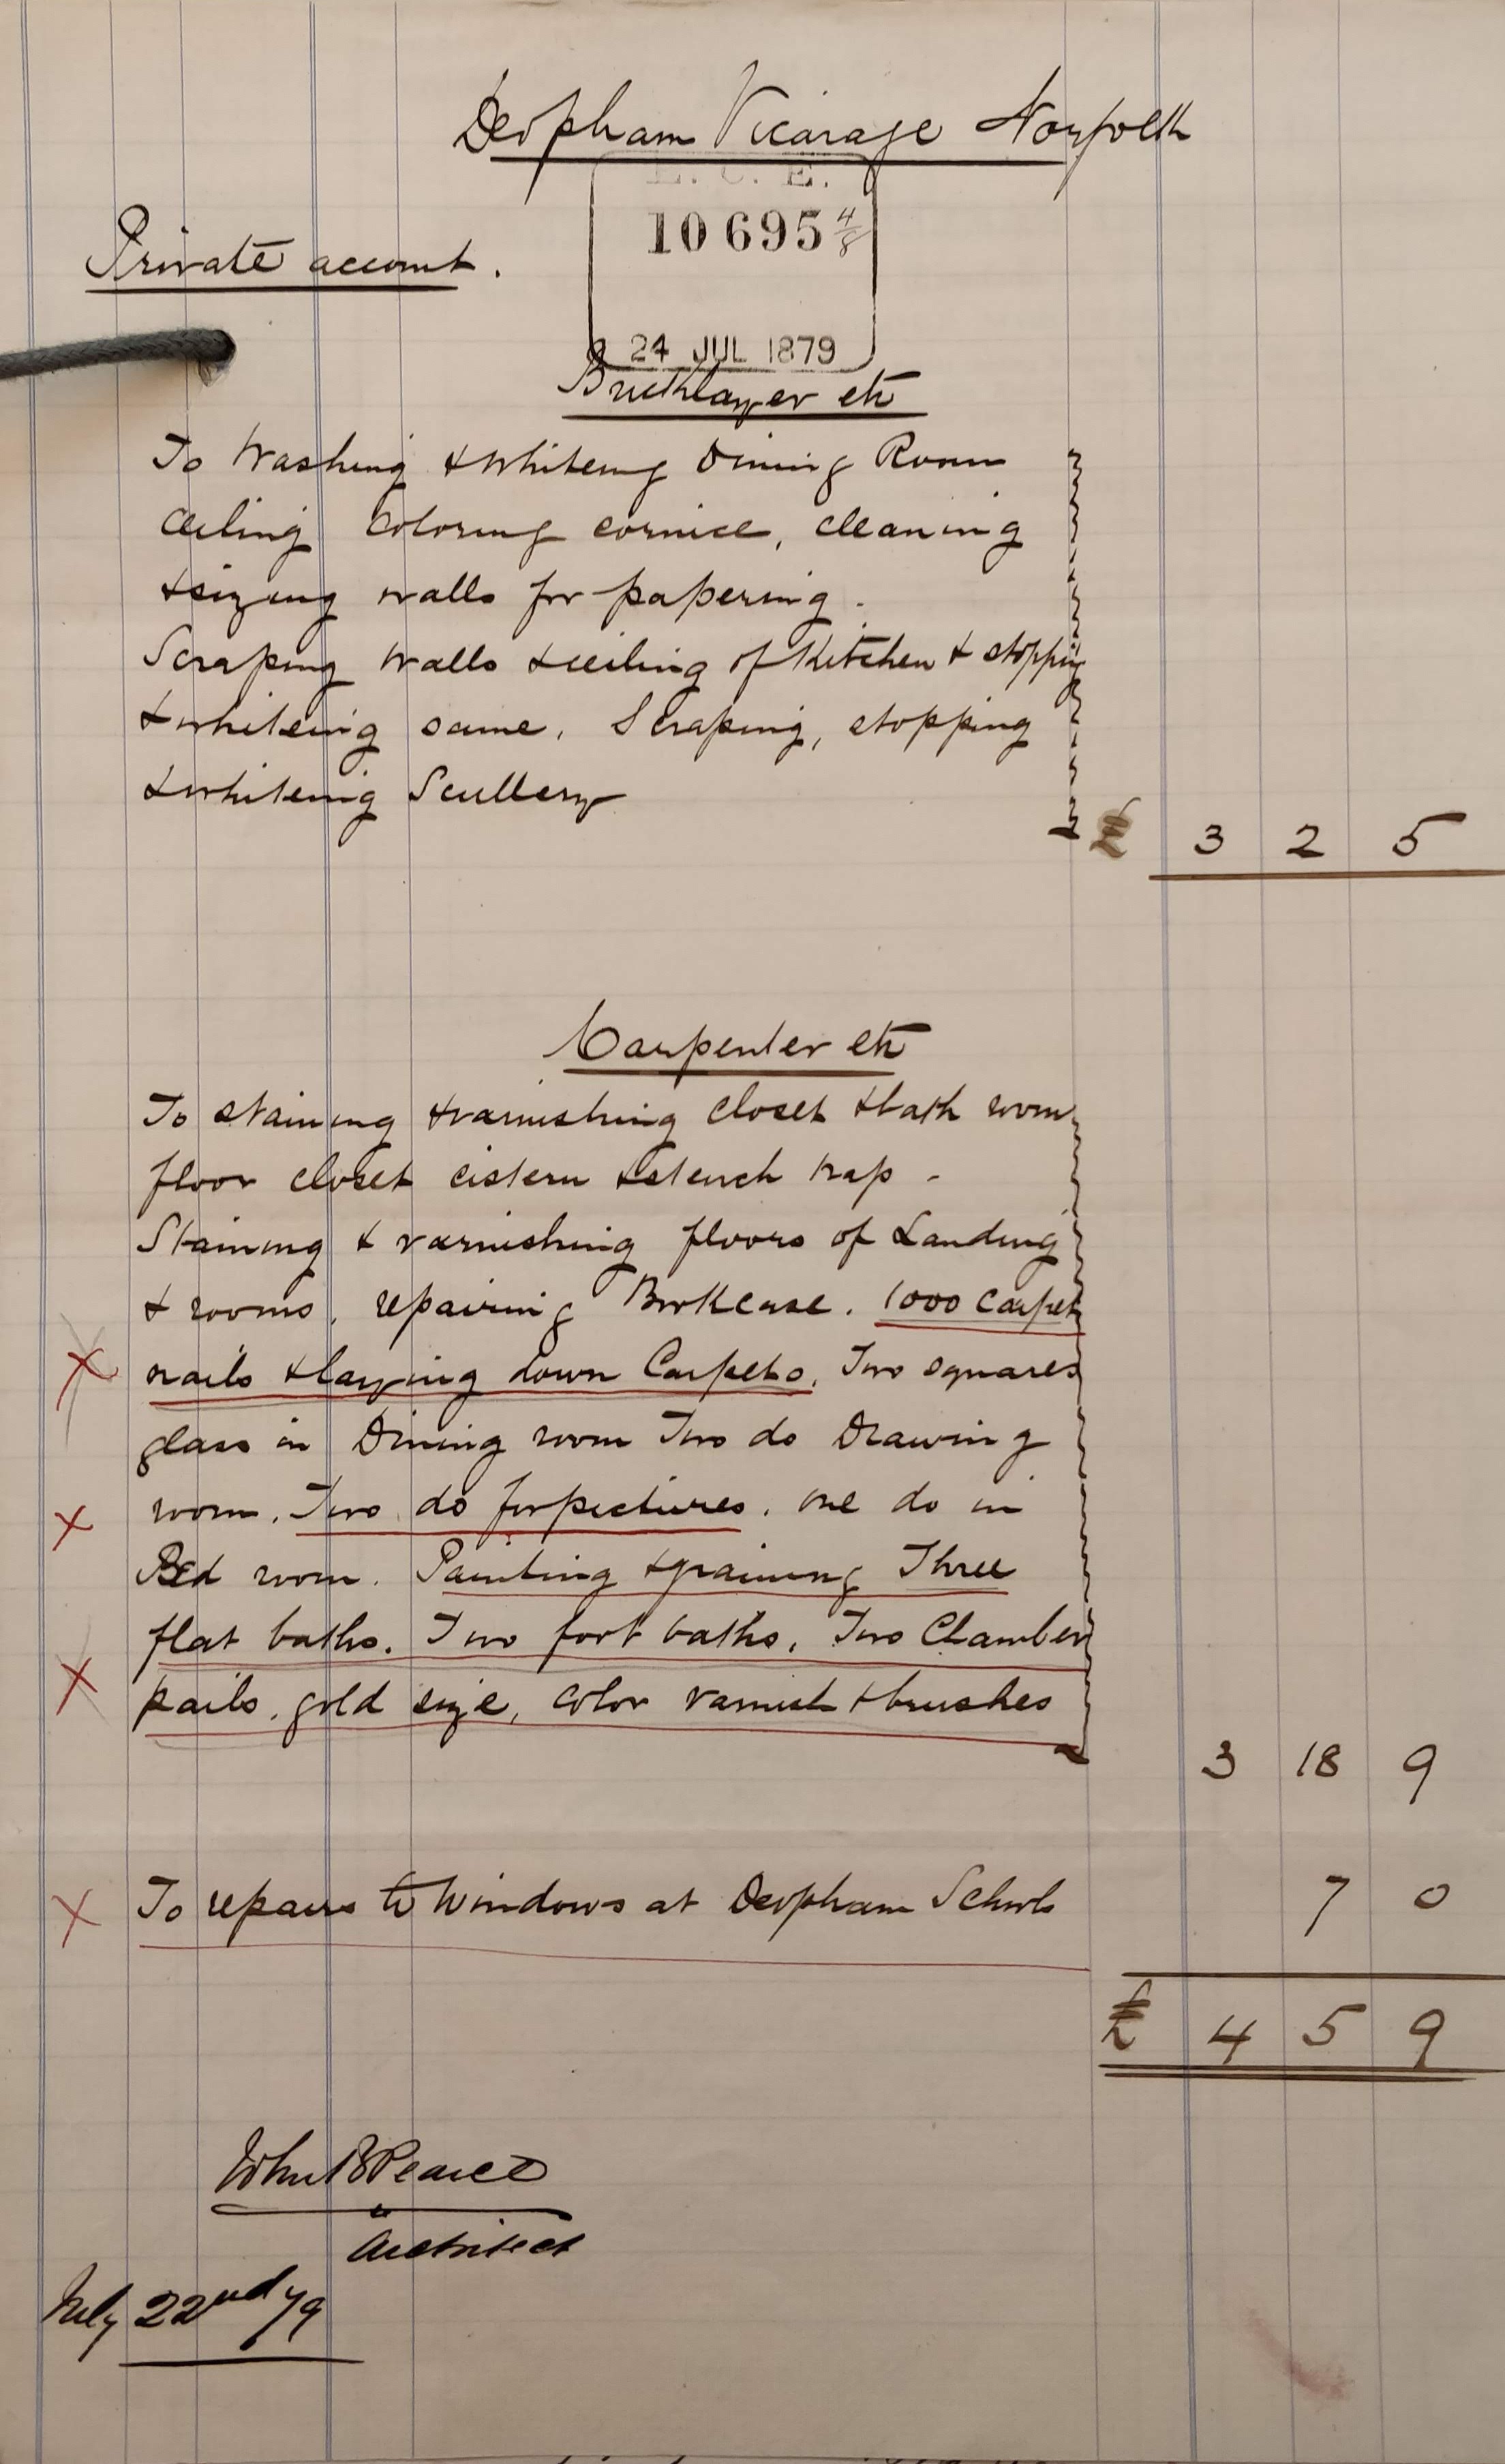 Deopham Vicarage Norfolk
E. C. E.
10695 4/8
Private account.
24 JUL 1879
Bricklayer etc
To Washing & Whitening Dining Room
Ceiling Coloring cornice, cleaning
& sizing walls for papering.
Scraping walls & ceiling of Kitchen & stopping
& whitening same. Scraping, stopping
& whitening Scullery
£ 3 2 5
Carpenter etc
To staining & varnishing closet & bath room
floor closet cistern & stench trap -
Staining & varnishing floors of Landing
& rooms, repairing Bookcase. 1000 Carpet
x nails & laying down Carpets. Two squares
glass in Dining room Two do Drawing
x room. Two do for pictures. one do in
Bed room. Painting & graining Three
flat baths. Two foot baths, Two Chamber
x pails, gold size, color varnish & brushes
3 18 9
x To repairs to Windows at Deopham Schools 7 0
£ 4 5 9
John B Pearce
Architect
July 22nd /79